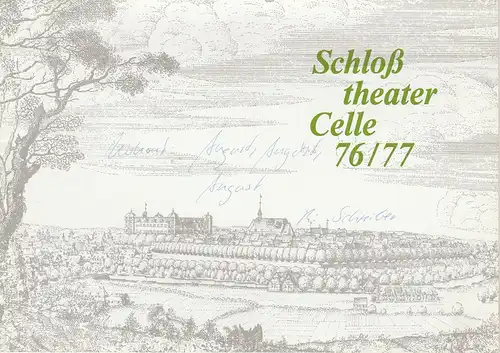 Schloß
theater
Celle
76/77
August, August,
August